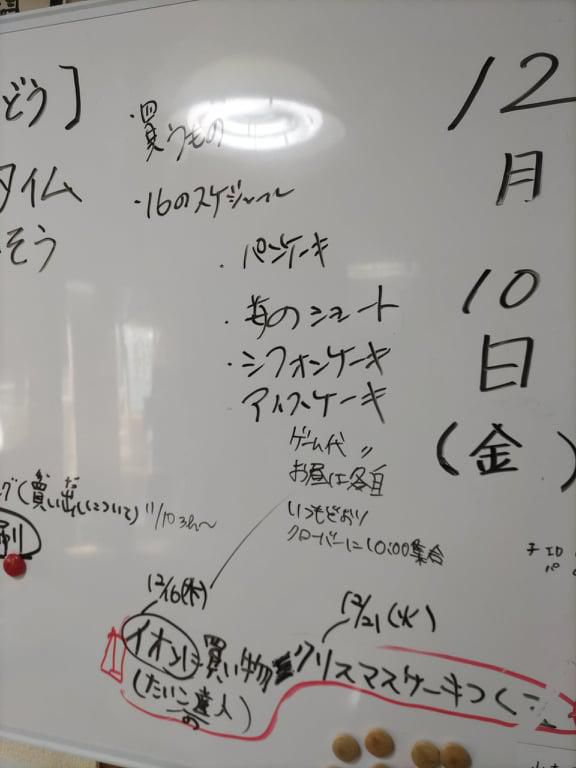 どう]
タイム
そう
・買うもの
・16のスケジュール
・パンケーキ
・苺のショート
・シフォンケーキ
アイスケーキ
ゲーム代 〃
お昼は各自
いつもどおり
クローバーに10:00集合
12
月
10
日
(金)
グ(買い出しについて)
12/16(木)
12/21(火)
イオンに買い物
クリスマスケーキつくり
(たいこの達人)